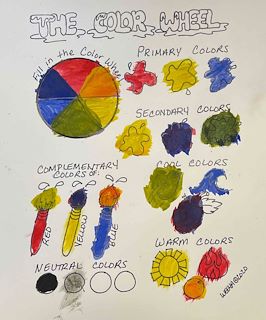 THE COLOR WHEEL
Fill in the Color Wheel
PRIMARY COLORS
SECONDARY COLORS
COMPLEMENTARY
COLORS OF:
RED
YELLOW
BLUE
COOL COLORS
WARM COLORS
NEUTRAL COLORS